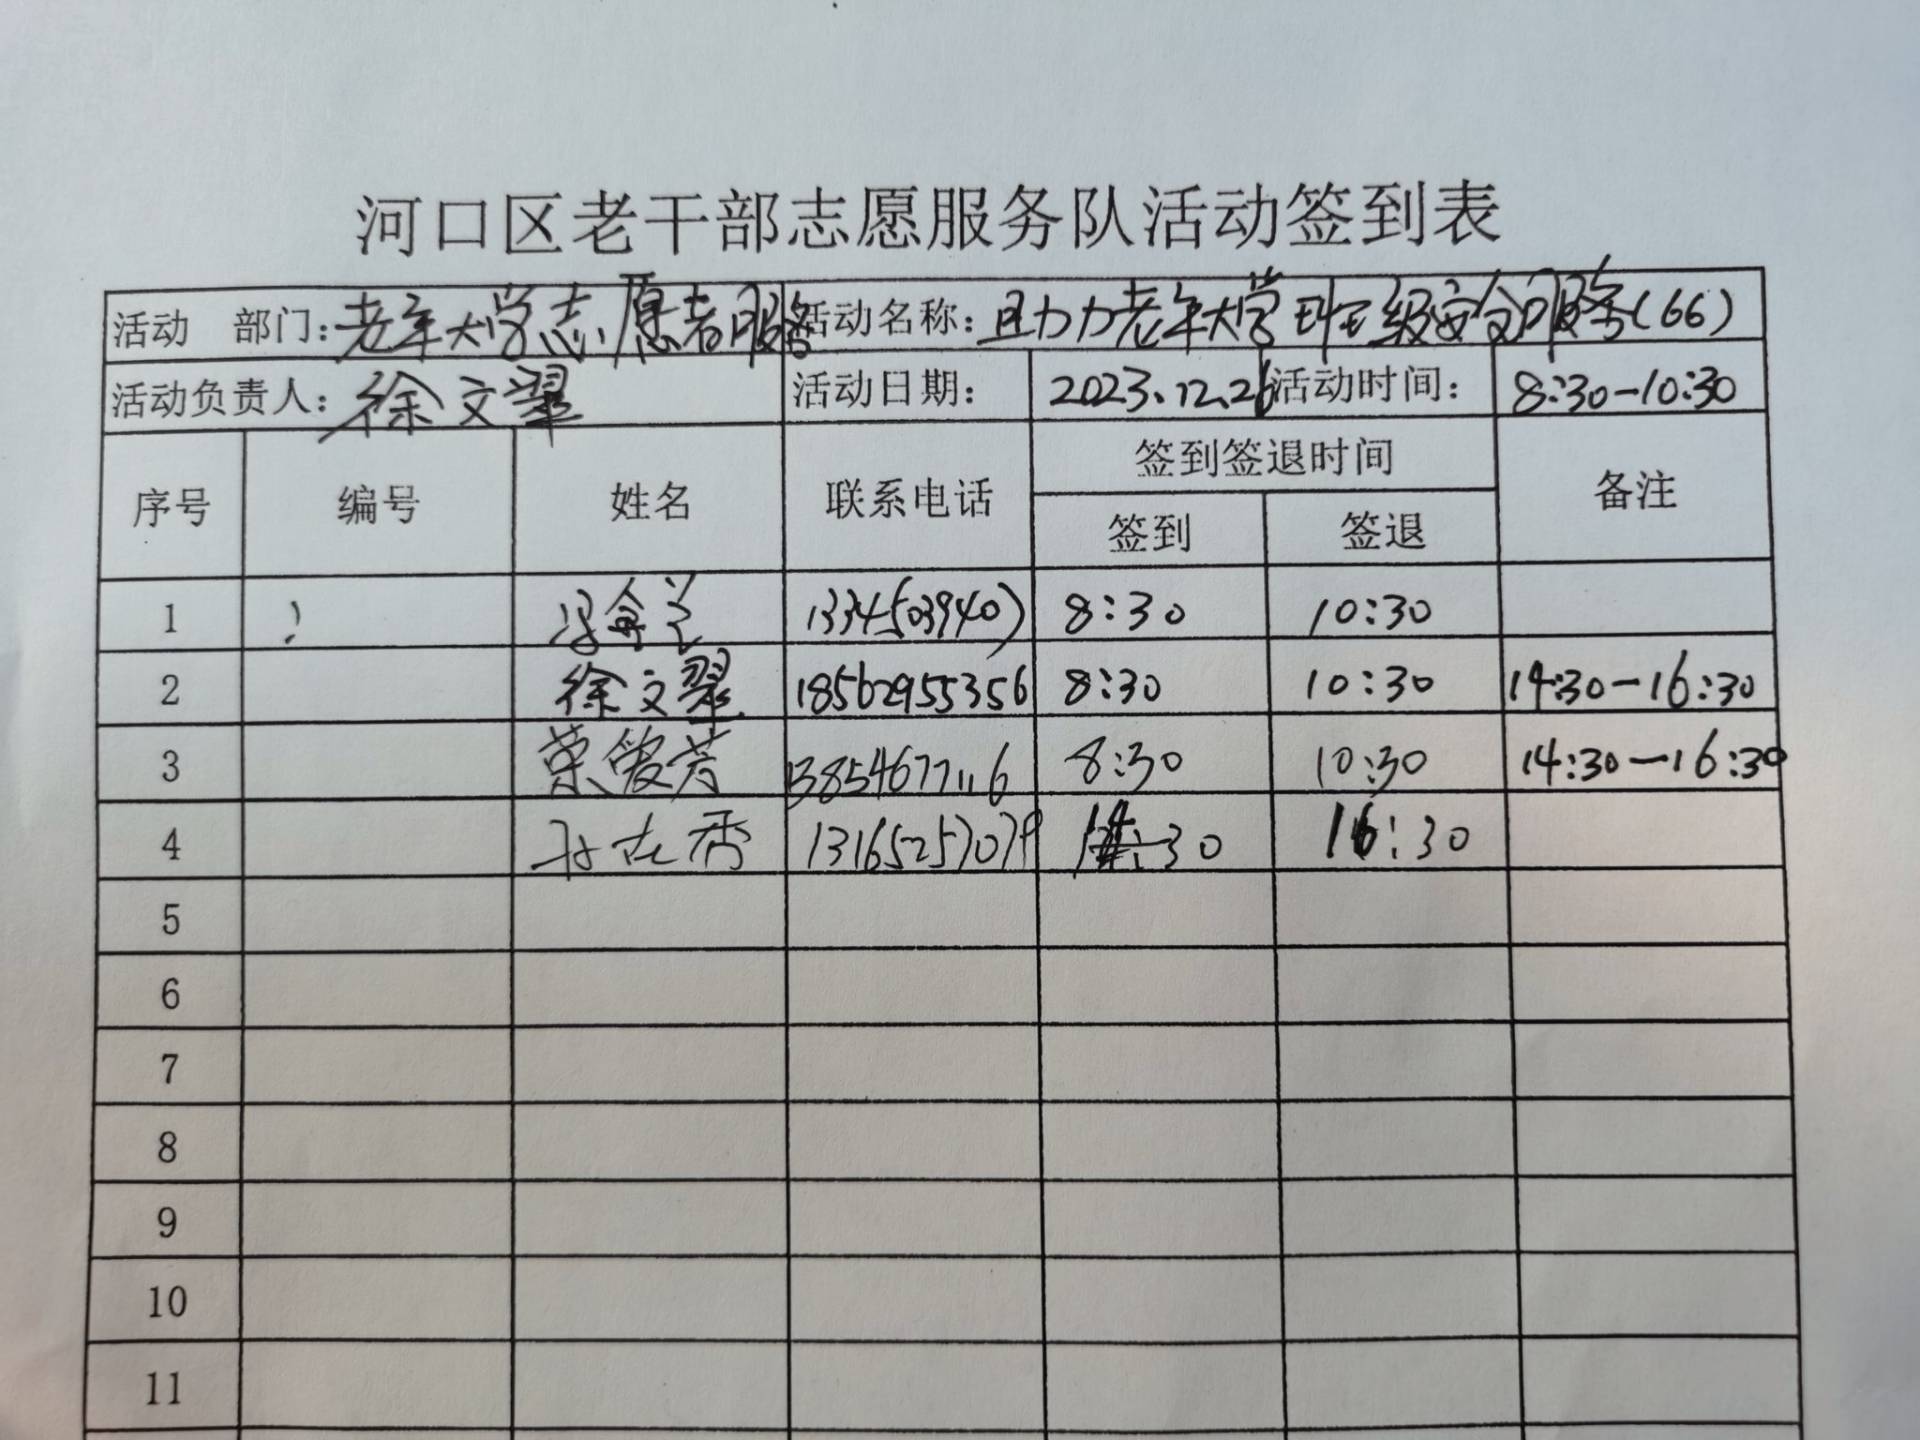 河口区老干部志愿服务队活动签到表
活动 部门：老年大学志愿者服务 活动名称：助力老年大学班级安全服务（66）
活动负责人：徐文翠 活动日期： 2023.12.26 活动时间： 8:30-10:30
序号 编号 姓名 联系电话 签到签退时间 备注
签到 签退
1 8:30 10:30
2 徐文翠 18562955356 8:30 10:30 14:30-16:30
3 荣爱芳 13854677116 8:30 10:30 14:30-16:30
4 16:30
5
6
7
8
9
10
11